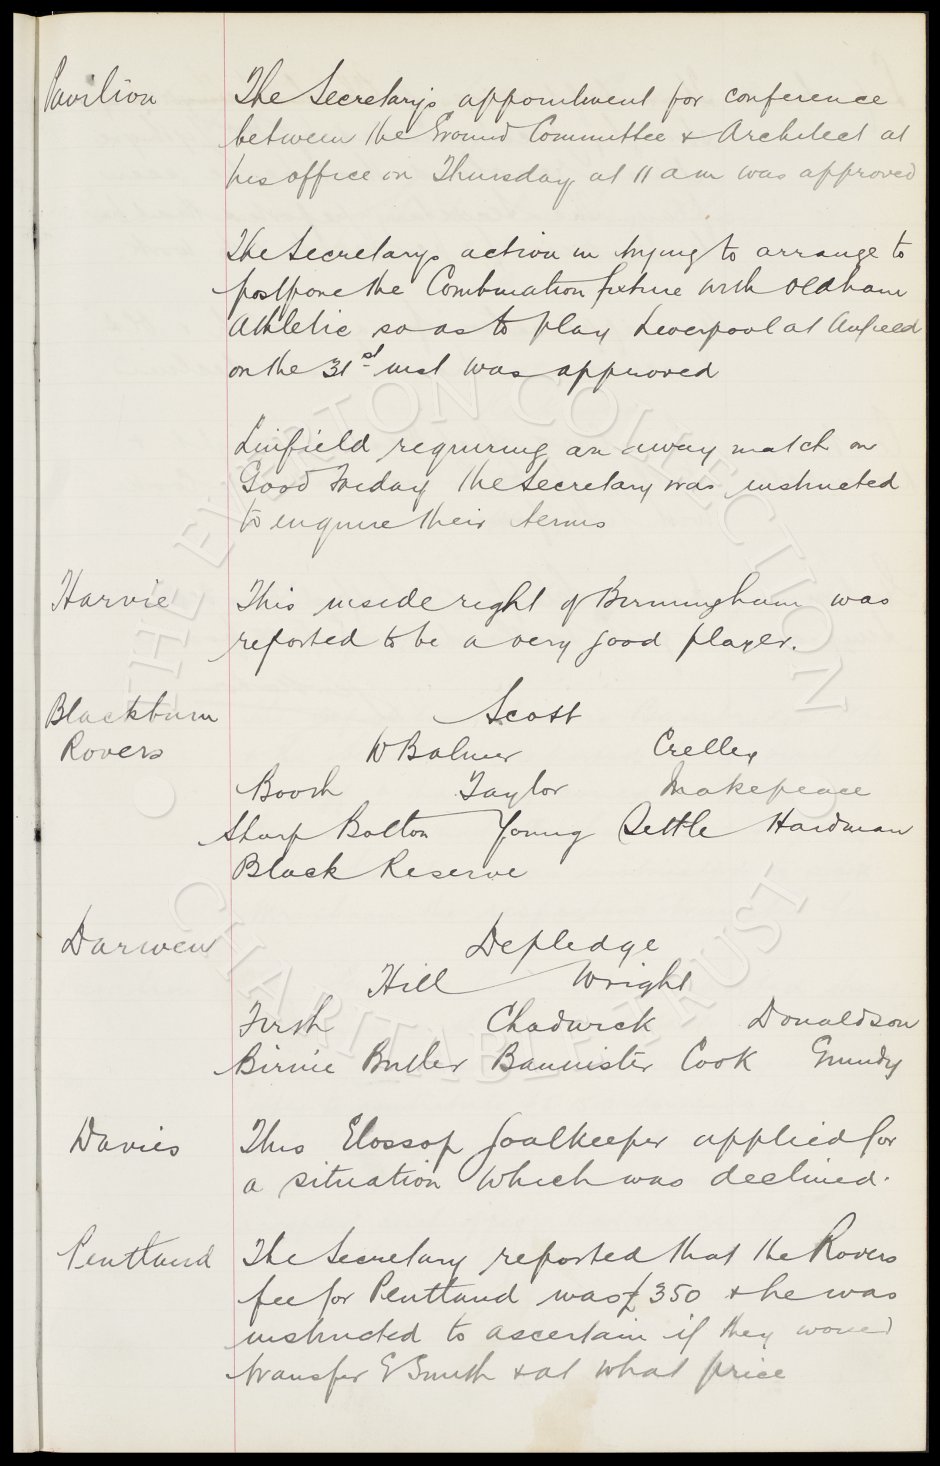 Pavilion
The Secretary's appointment for conference
between the Ground Committee & Architect at
his office on Thursday at 11 am was approved
The Secretary's action in trying to arrange to
postpone the Combination fixture with Oldham
Athletic so as to play Liverpool at Anfield
on the 31st inst was approved
Linfield requiring an away match on
Good Friday the Secretary was instructed
to enquire their terms
Harvie
This inside right of Birmingham was
reported to be a very good player.
Blackburn
Rovers
Scott
W Balmer Crelley
Booth Taylor Makepeace
Sharp Bolton Young Settle Hardman
Black Reserve
Darwen
Depledge
Hill Wright
Firth Chadwick Donaldson
Birnie Butler Bannister Cook Grundy
Davies
This Glossop Goalkeeper applied for
a situation which was declined.
Pentland
The Secretary reported that the Rovers
fee for Pentland was £350 & he was
instructed to ascertain if they would
transfer E Smith & at what price
THE EVERTON COLLECTION
CHARITABLE TRUST